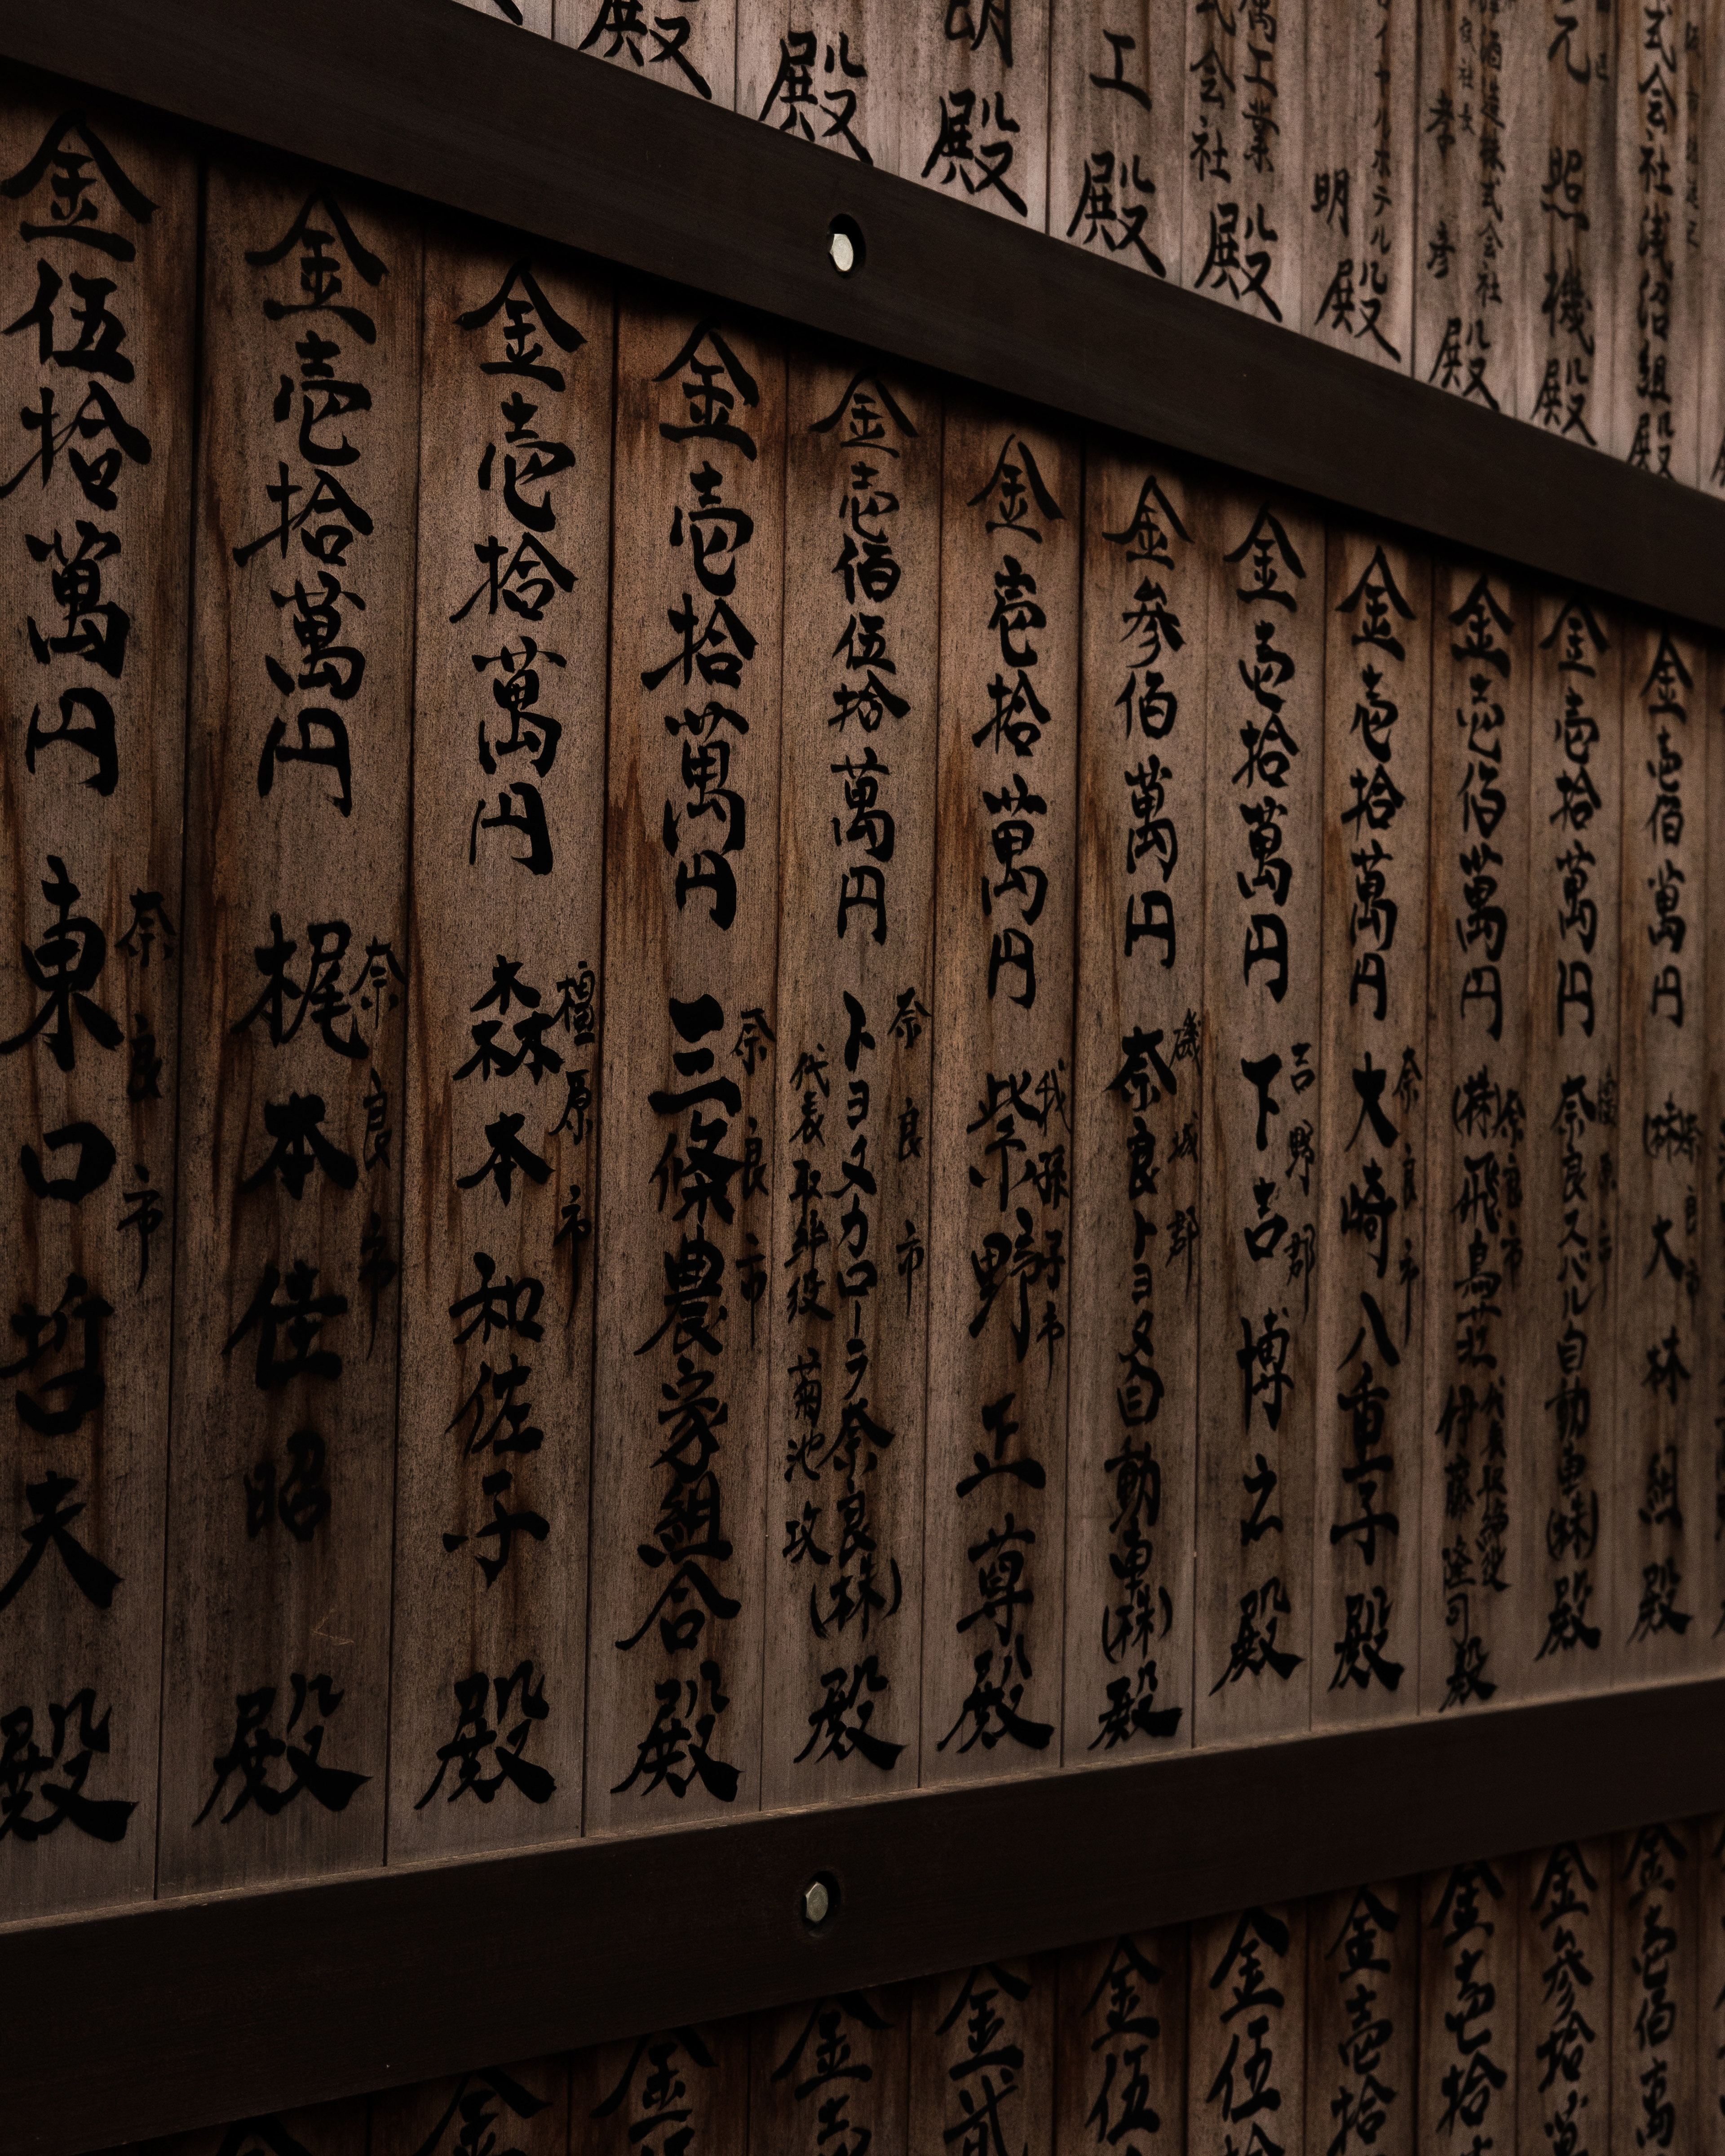 式会社浅沼組殿
元照機殿
酒造株式会社
孝彦殿
イヤルホテル
明殿
萬工業
式会社殿
工殿
殿
殿
殿
金壱佰萬円
奈良市
(株)大林組殿
金壱拾萬円
橿原市
奈良スバル自動車(株)殿
金壱佰萬円
奈良市
(株)飛鳥荘
代表取締役
伊藤隆司殿
金壱拾萬円
奈良市
大崎八重子殿
金壱拾萬円
吉野郡
下吉博之殿
金参佰萬円
磯城郡
奈良トヨタ自動車(株)殿
金壱拾萬円
我孫子市
紫野正尊殿
金壱佰伍拾萬円
奈良市
トヨタカローラ奈良(株)
代表取締役菊池攻
殿
金壱拾萬円
奈良市
三條農家組合殿
金壱拾萬円
橿原市
森本和佐子殿
金壱拾萬円
奈良市
梶本佳昭殿
金伍拾萬円
奈良市
東口哲夫殿
金壱佰萬
金参拾萬
金壱拾
金壱拾
金伍拾
金伍
金貳
金壱
金
金